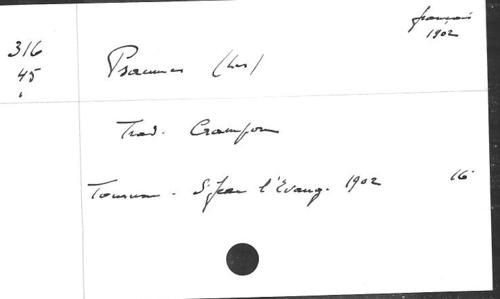 français
1902
316
45
Psaumes (Les)
Trad. Crampon
Tournai - S. Jean l'Evang. 1902 16